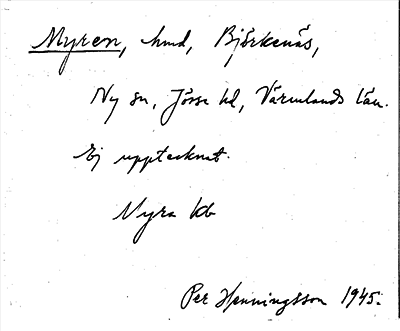 Myren, hmd, Björkenäs,
Ny sn, Jösse hd, Värmlands län.
Ej upptecknat.
Nyra kb
Per Henningsson 1945.